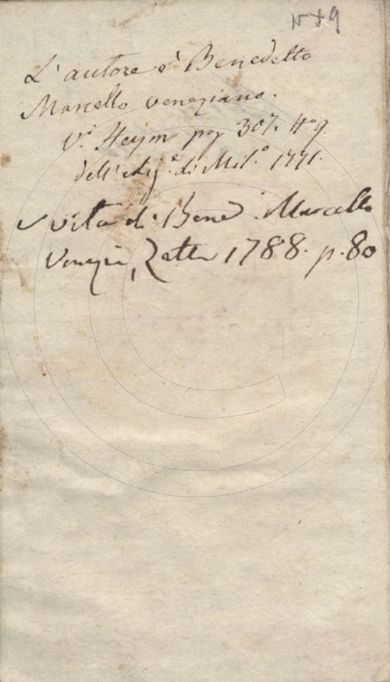 L'autore è Benedetto
Marcello veneziano.
V.i Haym pag 307. n.o 9
dell'ediz.e di Mil.o 1771.
vita di Bened. Marcello
Venezia, Zatta 1788. p. 80